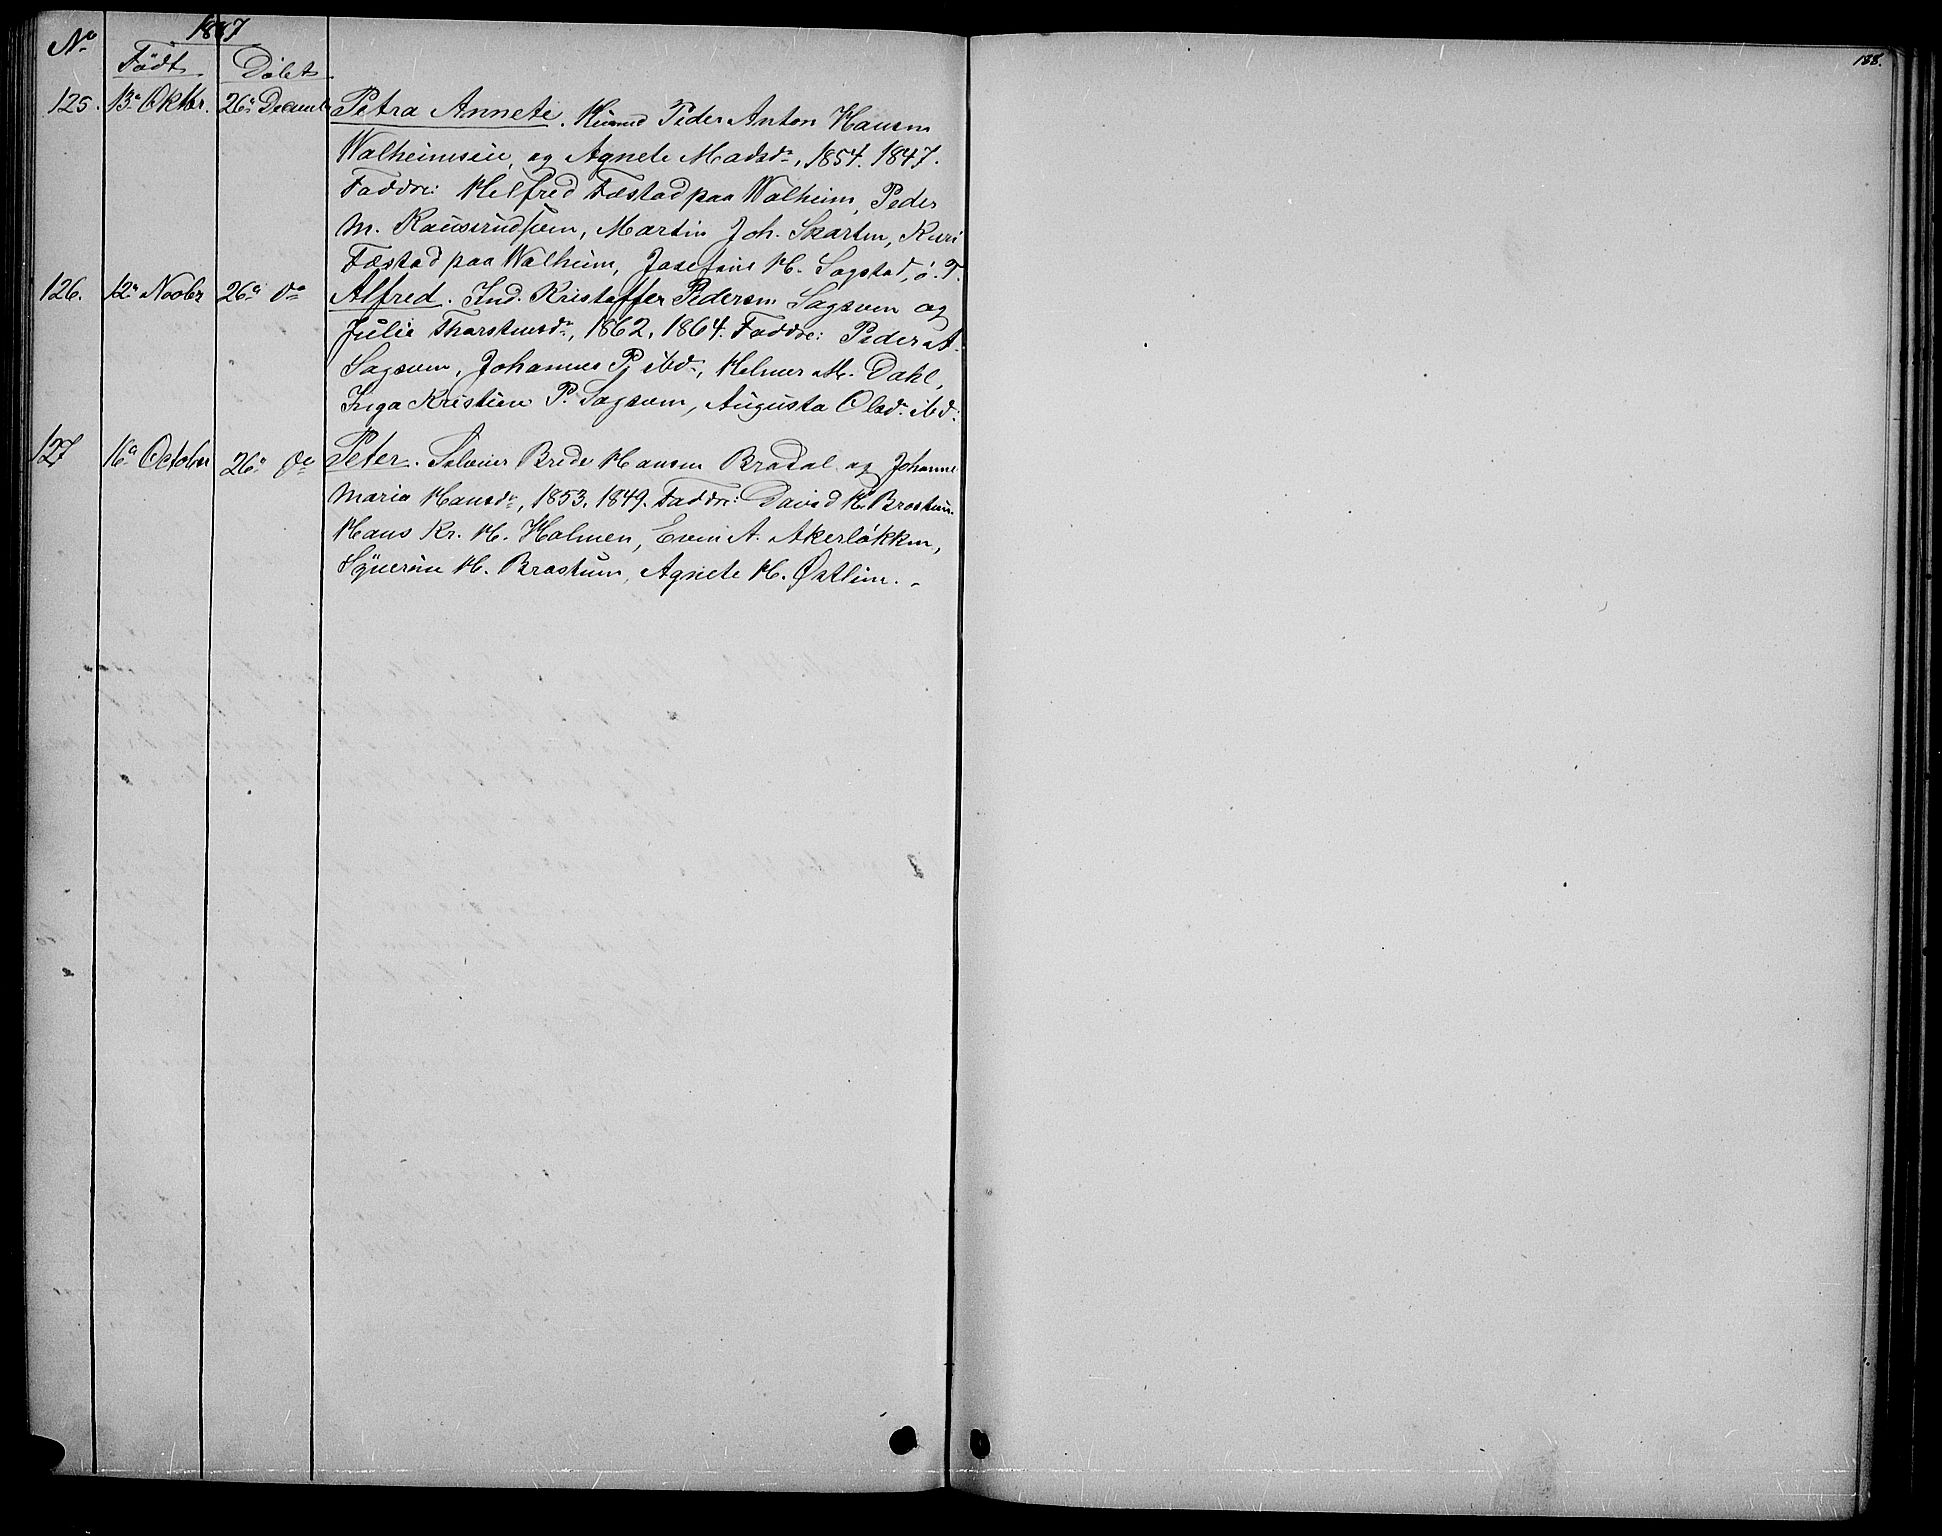 188.
No 1887
Født Døbt
125. 13de Oktbr. 26de Decemb Petra Annete. Huusmd Peder Anton Hansen
Walheimseie, og Agnete Madsdr, 1854. 1847.
Faddre: Helfred Fæstad paa Walheim, Peder
M. Kauserudsveen, Martin Joh. Skarten, Kari
Fæstad paa Walheim, Josefine H. Sogstad, ú. T.
126. 12te Novbr 26de do Alfred. Ind. Kristoffer Pedersen Sagsveen og
Julie Thorstensdr, 1862, 1864. Faddre: Peder A.
Sagsveen, Johannes P. ibd., Helmer M. Dahl,
Inga Kristine P. Sagsveen, Augusta Olsdr ibd.
127 16de October 26de do Peter. Selveier Brede Hansen Bradal og Johanne
Maria Hansdr, 1853, 1849. Faddre: David H. Brostuen
Hans Kr. H. Holmen, Even A. Akerløkken,
Syverine H. Brostuen, Agnete H. Østlien.